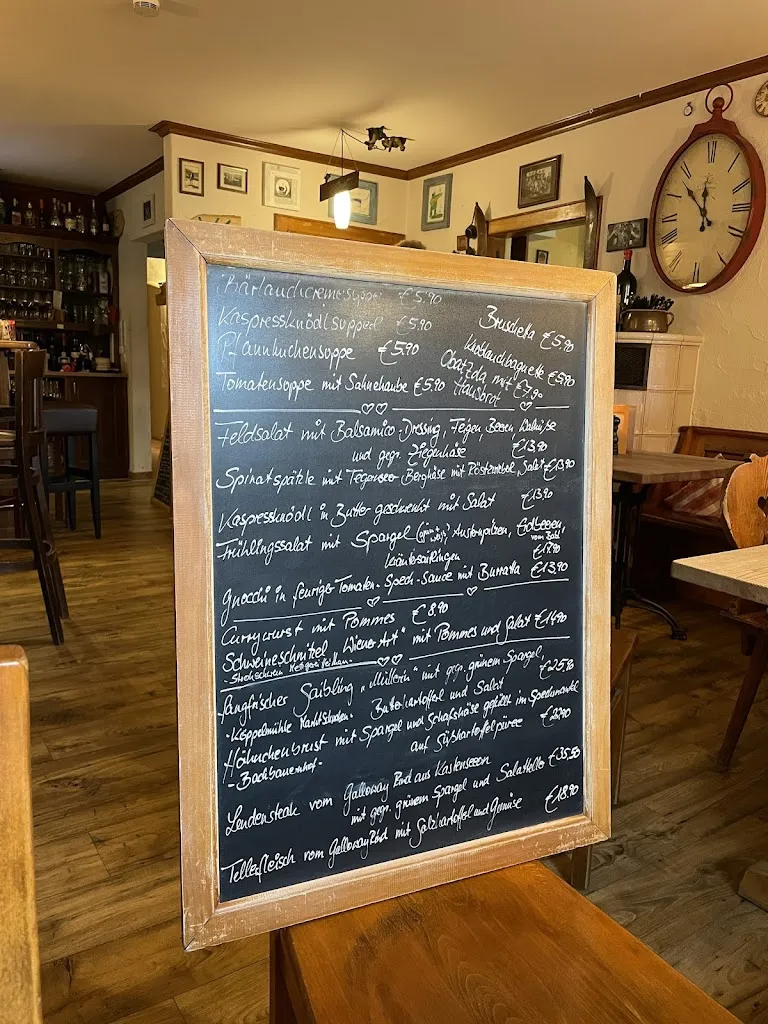 Bärlauchcremesuppe €5,90
Kaspressknödlsupperl €5,90
Pfannkuchensuppe €5,90
Tomatensuppe mit Sahnehaube €5,90
Bruschetta €5,90
Knoblauchbaguette €5,90
Obatzda mit €7,90
Hausbrot
Feldsalat mit Balsamico-Dressing, Feigen, Beeren, Walnüsse
und gegr. Ziegenkäse €13,90
Spinatspätzle mit Tegernsee-Bergkäse mit Röstzwiebel, Salat €13,90
Kaspressknödl in Butter geschwenkt mit Salat €13,90
Frühlingssalat mit Spargel (grün + weiß), Austernpilzen, Erdbeeren,
Kräutersaitlingen €17,90
Gnocchi in feuriger Tomaten-Speck-Sauce mit Burrata €13,90
Currywurst mit Pommes €8,90
Schweineschnitzel "Wiener Art" mit Pommes und Salat €14,90
Fangfrischer Saibling "Müllerin" mit gegr. grünem Spargel,
Butterkartoffel und Salat €25,90
Hühnchenbrust mit Spargel und Schafskäse gefüllt im Speckmantel
auf Süßkartoffelpüree
Lendensteak vom Galloway Rind aus Kastenseeon
mit gegr. grünem Spargel und Salatteller €35,50
Tellerfleisch vom Galloway Rind mit Salzkartoffel und Gemüse €18,90